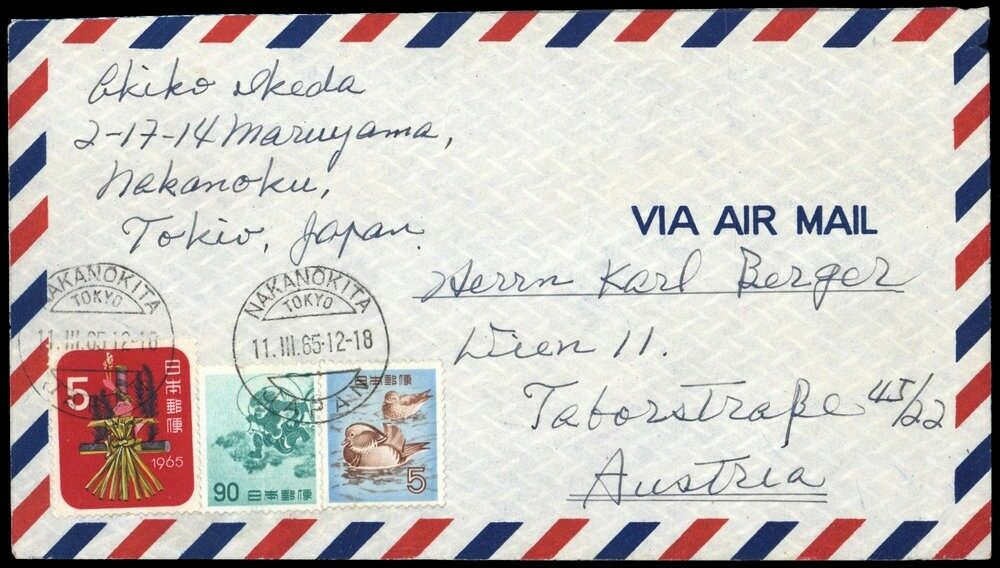 Akiko Ikeda
2-17-14 Maruyama,
Nakanoku,
Tokio, Japan.
VIA AIR MAIL
Herrn Karl Berger
Wien 11.
Taborstraße 45/22
Austria
NAKANOKITA
TOKYO
11.III.65.12-18
JAPAN
NAKANOKITA
TOKYO
11.III.65.12-18
JAPAN
5
日本郵便
1965
90 日本郵便
日本郵便
5